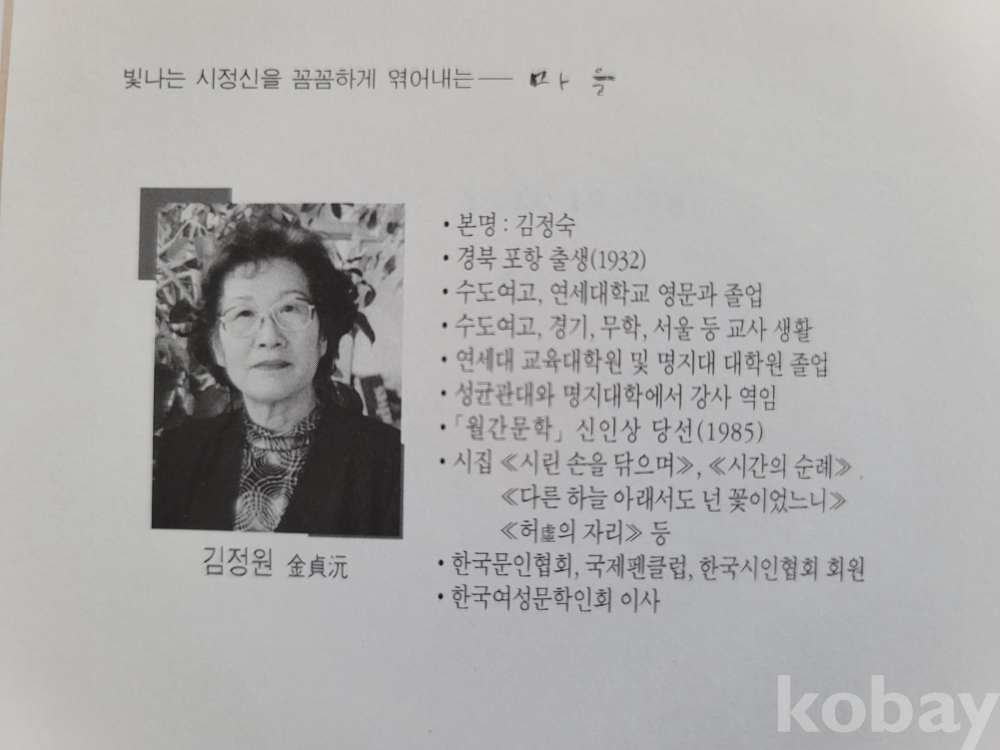 빛나는 시정신을 꼼꼼하게 엮어내는 — 마을
• 본명 : 김정숙
• 경북 포항 출생(1932)
• 수도여고, 연세대학교 영문과 졸업
• 수도여고, 경기, 무학, 서울 등 교사 생활
• 연세대 교육대학원 및 명지대 대학원 졸업
• 성균관대와 명지대학에서 강사 역임
• 「월간문학」 신인상 당선(1985)
• 시집 ≪시린 손을 닦으며≫, ≪시간의 순례≫
≪다른 하늘 아래서도 넌 꽃이었느니≫
≪허虛의 자리≫ 등
• 한국문인협회, 국제펜클럽, 한국시인협회 회원
• 한국여성문학인회 이사
김정원 金貞沅
kobay